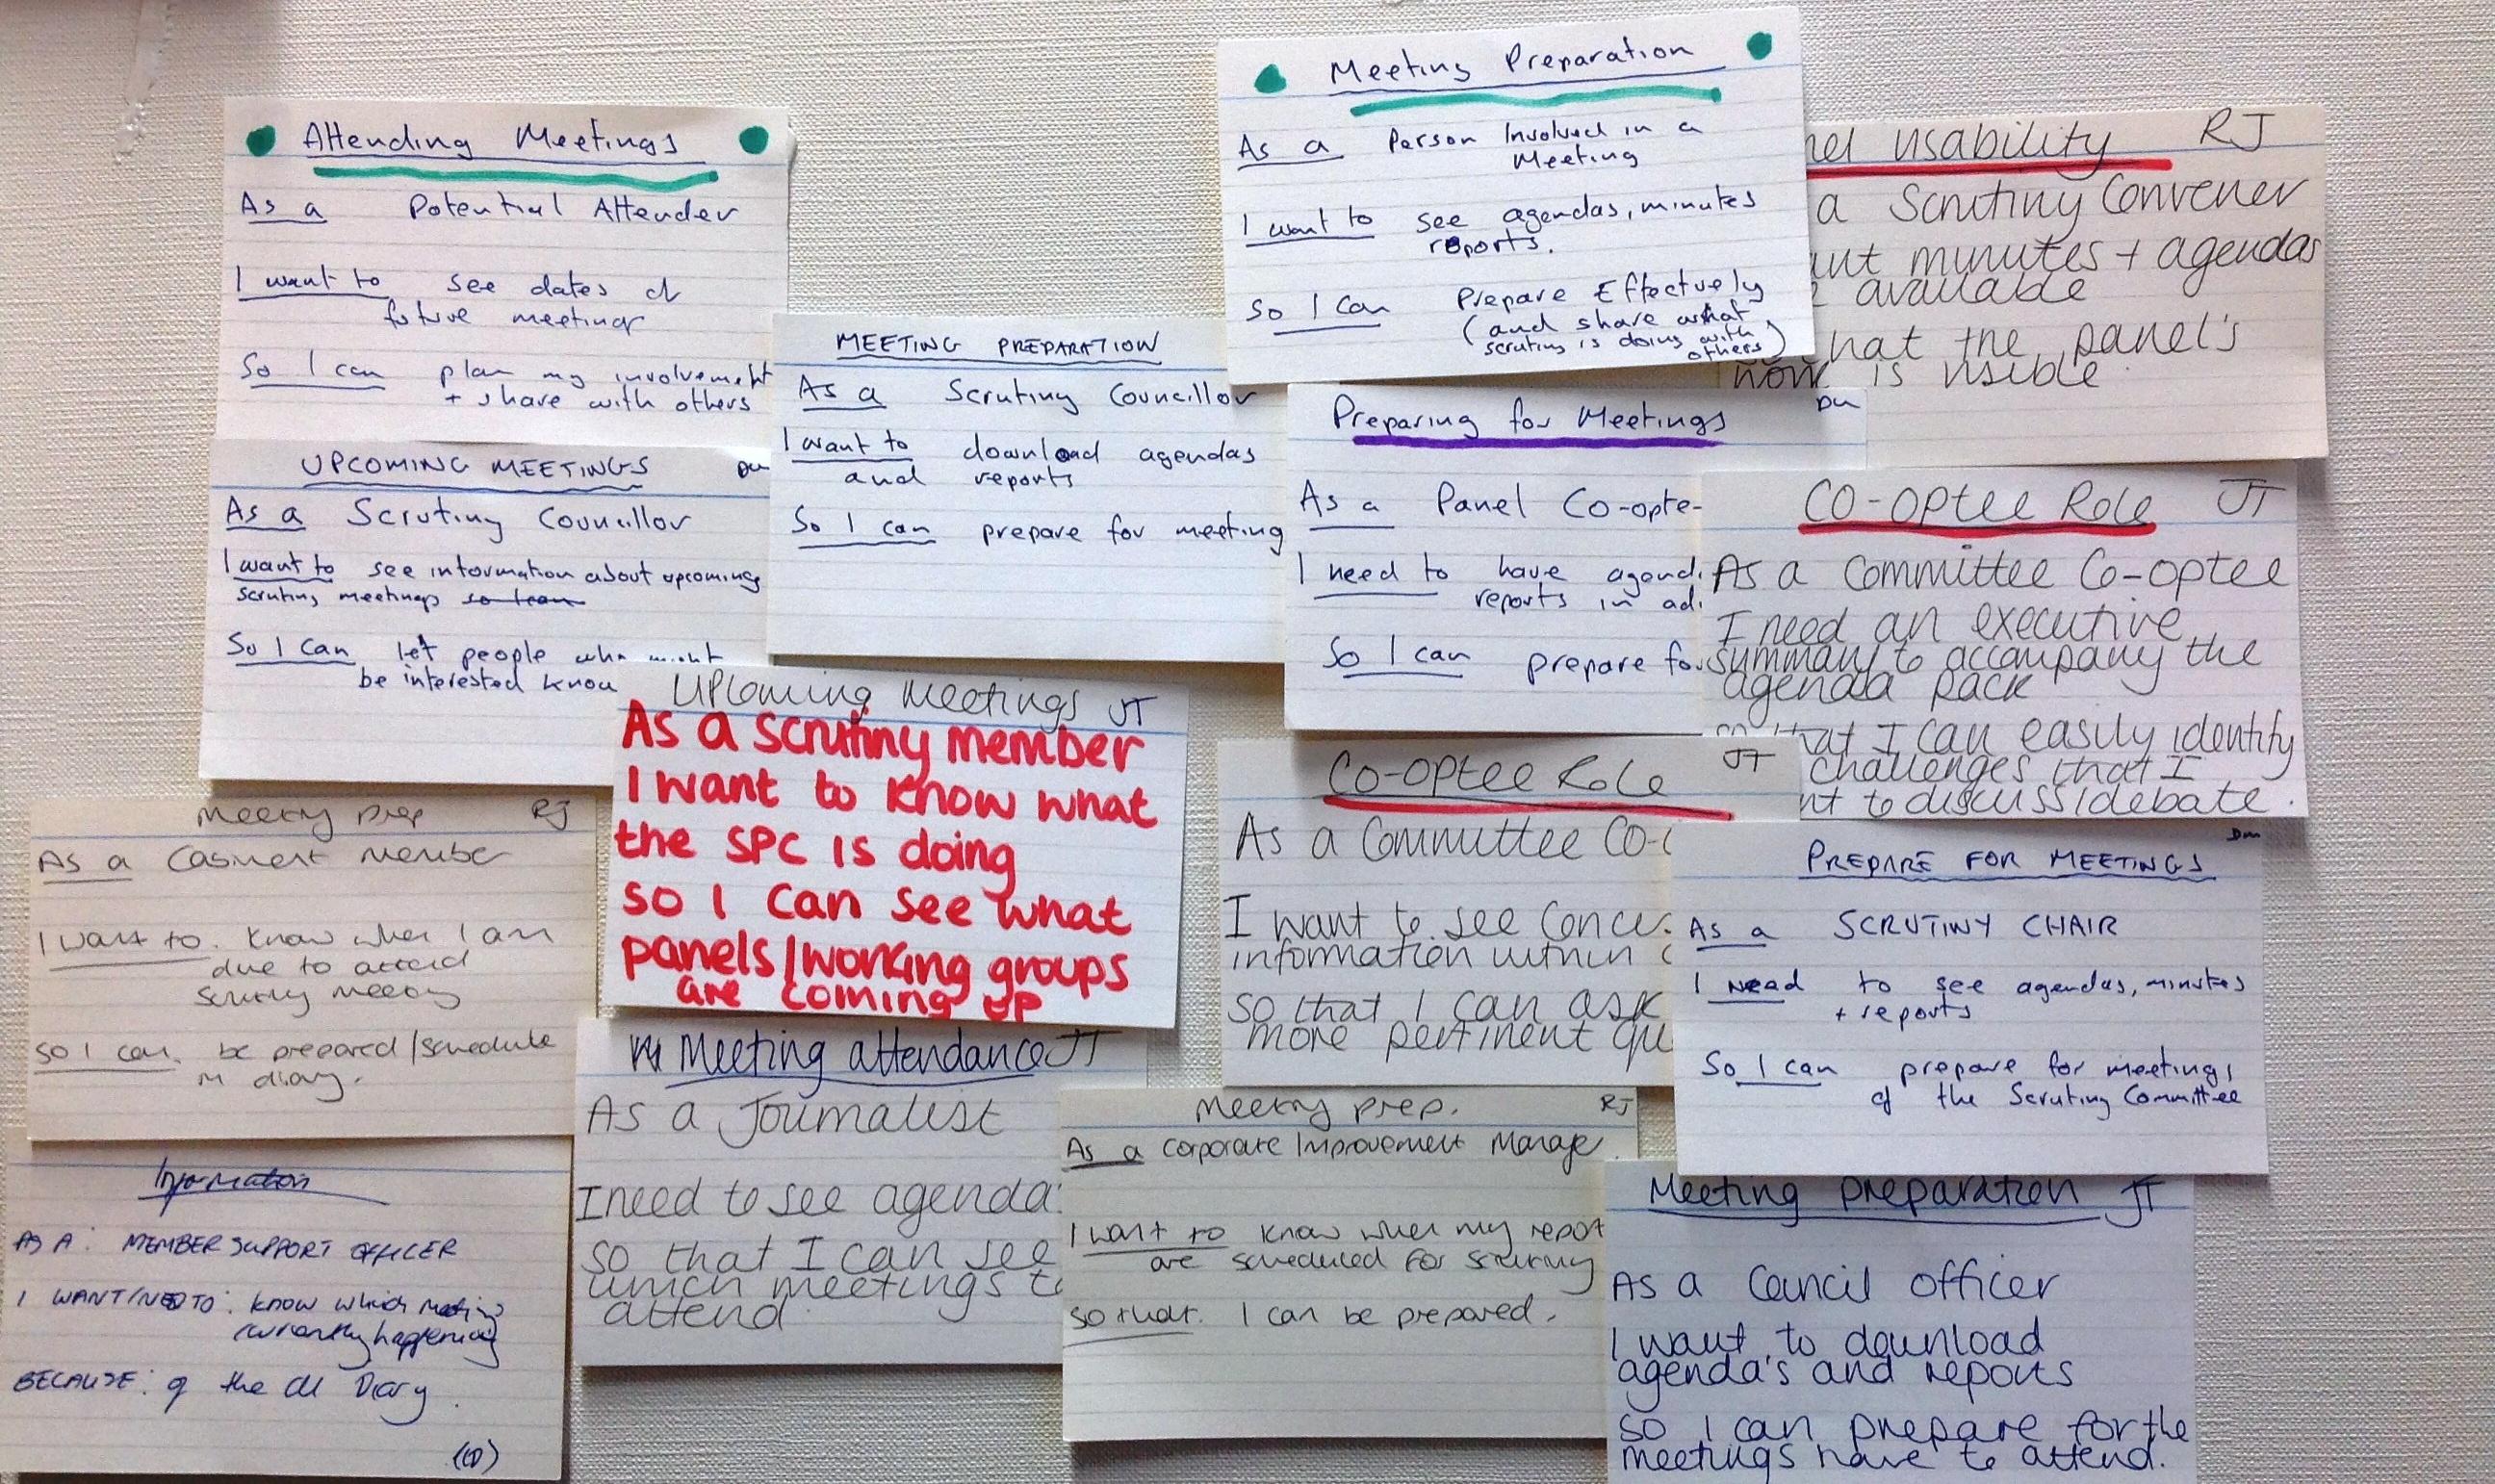 Attending Meetings
As a Potential Attender
I want to see dates of
future meetings
So I can plan my involvement
+ share with others
UPCOMING MEETINGS DM
As a Scrutiny Councillor
I want to see information about upcoming
scrutiny meetings so I can
So I can let people who might
be interested know
Meeting prep RJ
As a Cabinent member
I want to. know when I am
due to attend
scrutiny meeting
so I can. be prepared/schedule
in diary.
Information
AS A: MEMBER SUPPORT OFFICER
I WANT/NEED TO: know which meetings
currently happening
BECAUSE: of the Diary
MEETING PREPARATION
As a Scrutiny Councillor
I want to download agendas
and reports
So I can prepare for meeting
Upcoming meetings JT
As a scrutiny member
I want to know what
the SPC is doing
so I can see what
panels/working groups
are coming up
Meeting attendance JT
As a Journalist
I need to see agenda
so that I can see
which meetings to
attend
Meeting Preparation
As a Person Involved in a
Meeting
I want to see agendas, minutes
reports.
So I can Prepare Effectively
(and share what
scrutiny is doing with
others)
usability RJ
a Scrutiny Convener
minutes + agendas
available
the panel's
is visible
Preparing for Meetings DM
As a Panel Co-opte-
I need to have
reports in
So I can prepare
CO-OPTEE ROLE JT
As a Committee Co-optee
I need an executive
summary to accompany the
agenda pack
so that I can easily identify
challenges that I
to discuss/debate.
CO-OPTEE ROLE JT
As a Committee CO-
I want to see
information within
so that I can ask
more pertinent
PREPARE FOR MEETINGS DM
As a SCRUTINY CHAIR
I need to see agendas, minutes
+ reports
So I can prepare for meetings
of the Scrutiny Committee
Meeting prep. RJ
As a Corporate Improvement Manager
I want to know when my report
are scheduled for scrutiny
so that. I can be prepared.
Meeting preparation JT
As a Council officer
I want to download
agenda's and reports
so I can prepare for the
meetings have to attend.